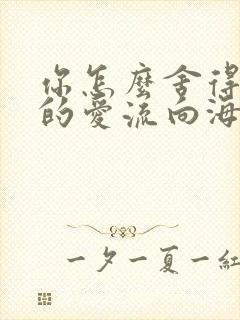 你怎麼舍得
的愛流向海
一夕一夏一紅